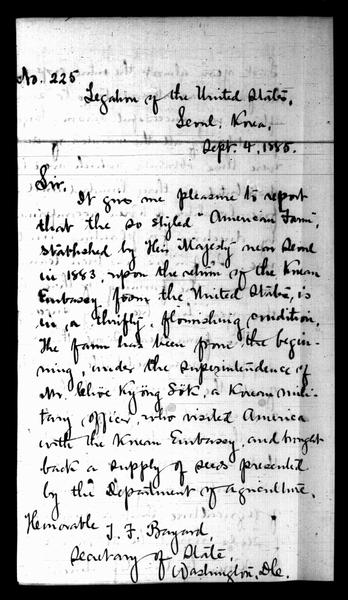 No. 225
Legation of the United States,
Seoul, Korea,
Sept. 4, 1885.
Sir.
It gives me pleasure to report
that the so styled "American Farm",
established by His Majesty near Seoul
in 1883, upon the return of the Korean
Embassy from the United States, is
in a thrifty, flourishing condition.
The farm has been from the begin-
ning, under the superintendence of
Mr. Chöe Kyöng Sök, a Korean mili-
tary officer, who visited America
with the Korean Embassy, and brought
back a supply of seeds presented
by the Department of Agriculture.
Honorable T. F. Bayard,
Secretary of State,
Washington, D.C.